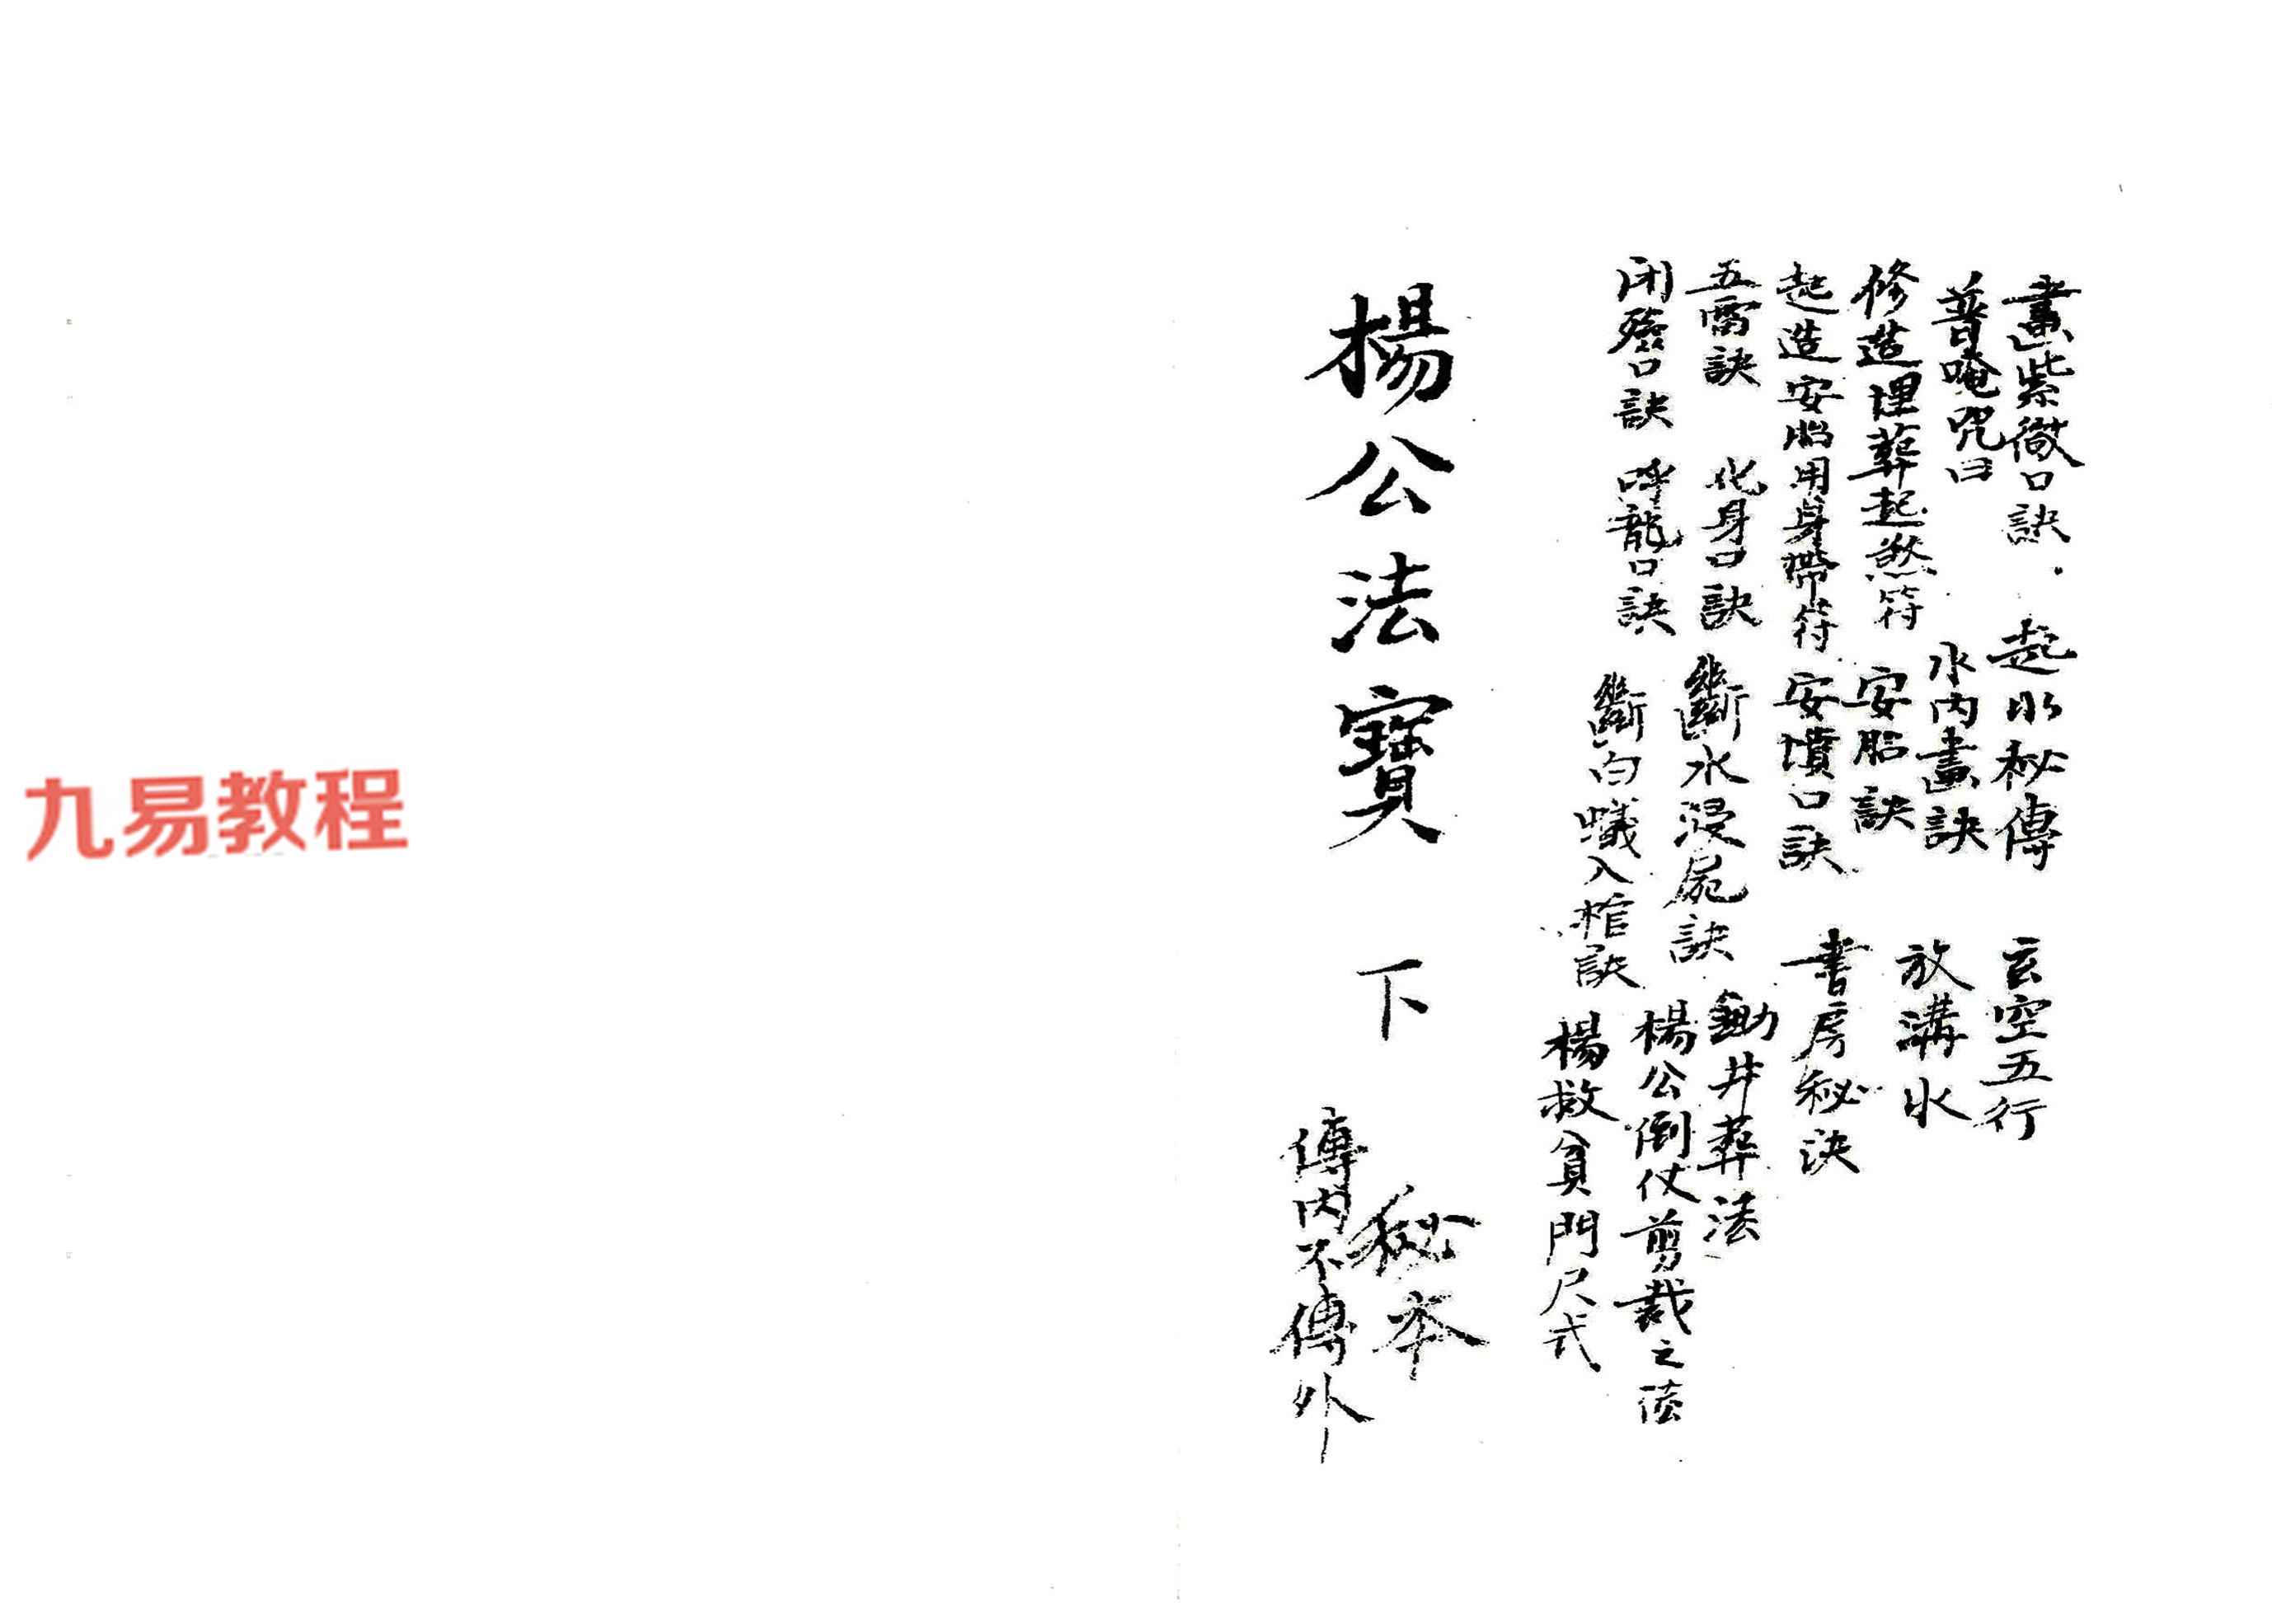 畫紫微口訣 起水秘傳 玄空五行
普唵咒曰 水內畫訣 放溝水
修造埋葬起煞符 安胎訣
起造安胎用身帶符 安墳口訣 書房秘決
五雷訣 化身口訣 斷水浸屍訣 井葬法
閉殮口訣 呼龍口訣 斷白蟻入棺訣 楊公倒仗剪裁之法
楊救貧門尺式
楊公法寶 下 秘本
傳內不傳外
九易教程